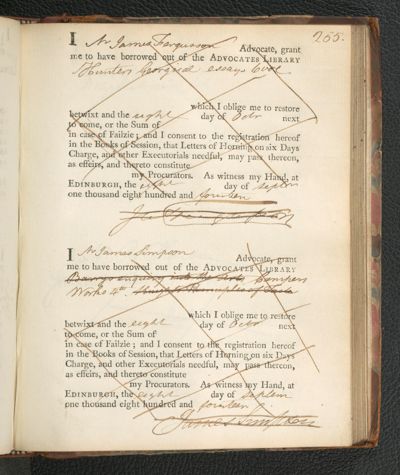 255.
I Mr James Ferguson Advocate, grant
me to have borrowed out of the ADVOCATES LIBRARY
Hunters Georgical essays 6 vol
which I oblige me to restore
betwixt and the eight day of Octr next
to come, or the Sum of
in case of Failzie; and I consent to the registration hereof
in the Books of Session, that Letters of Horning on six Days
Charge, and other Executorials needful, may pass thereon,
as effeirs, and thereto constitute
my Procurators. As witness my Hand, at
EDINBURGH, the eight day of Septem
one thousand eight hundred and fourteen
I Mr James Simpson Advocate, grant
me to have borrowed out of the ADVOCATES LIBRARY
Works 4to
which I oblige me to restore
betwixt and the eight day of Octr next
to come, or the Sum of
in case of Failzie; and I consent to the registration hereof
in the Books of Session, that Letters of Horning, on six Days
Charge, and other Executorials needful, may pass thereon,
as effeirs, and thereto constitute
my Procurators. As witness my Hand, at
EDINBURGH, the eight day of Septem
one thousand eight hundred and fourteen
James Simpson